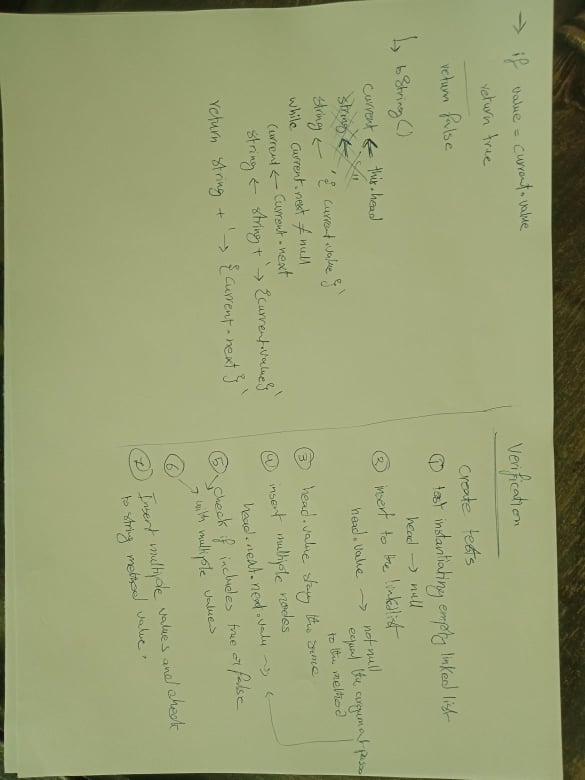 → if value = current.value
return true
return false
↳ toString()
current ← this.head
string ← " "
string ← '{ current.value }'
while current.next ≠ null
current ← current.next
string ← string + ' → {current.value}'
return string + ' → { current.next }'
Verification
Create tests
① test instantiating empty linked list
head → null
② insert to the linkedlist
head.value → not null
equal the argument pass
to the method
③ head.value stay the same
④ insert multiple nodes
head.next.next.value →
⑤ check if includes true or false
⑥ → with multiple values
⑦ Insert multiple values and check
to string method value.